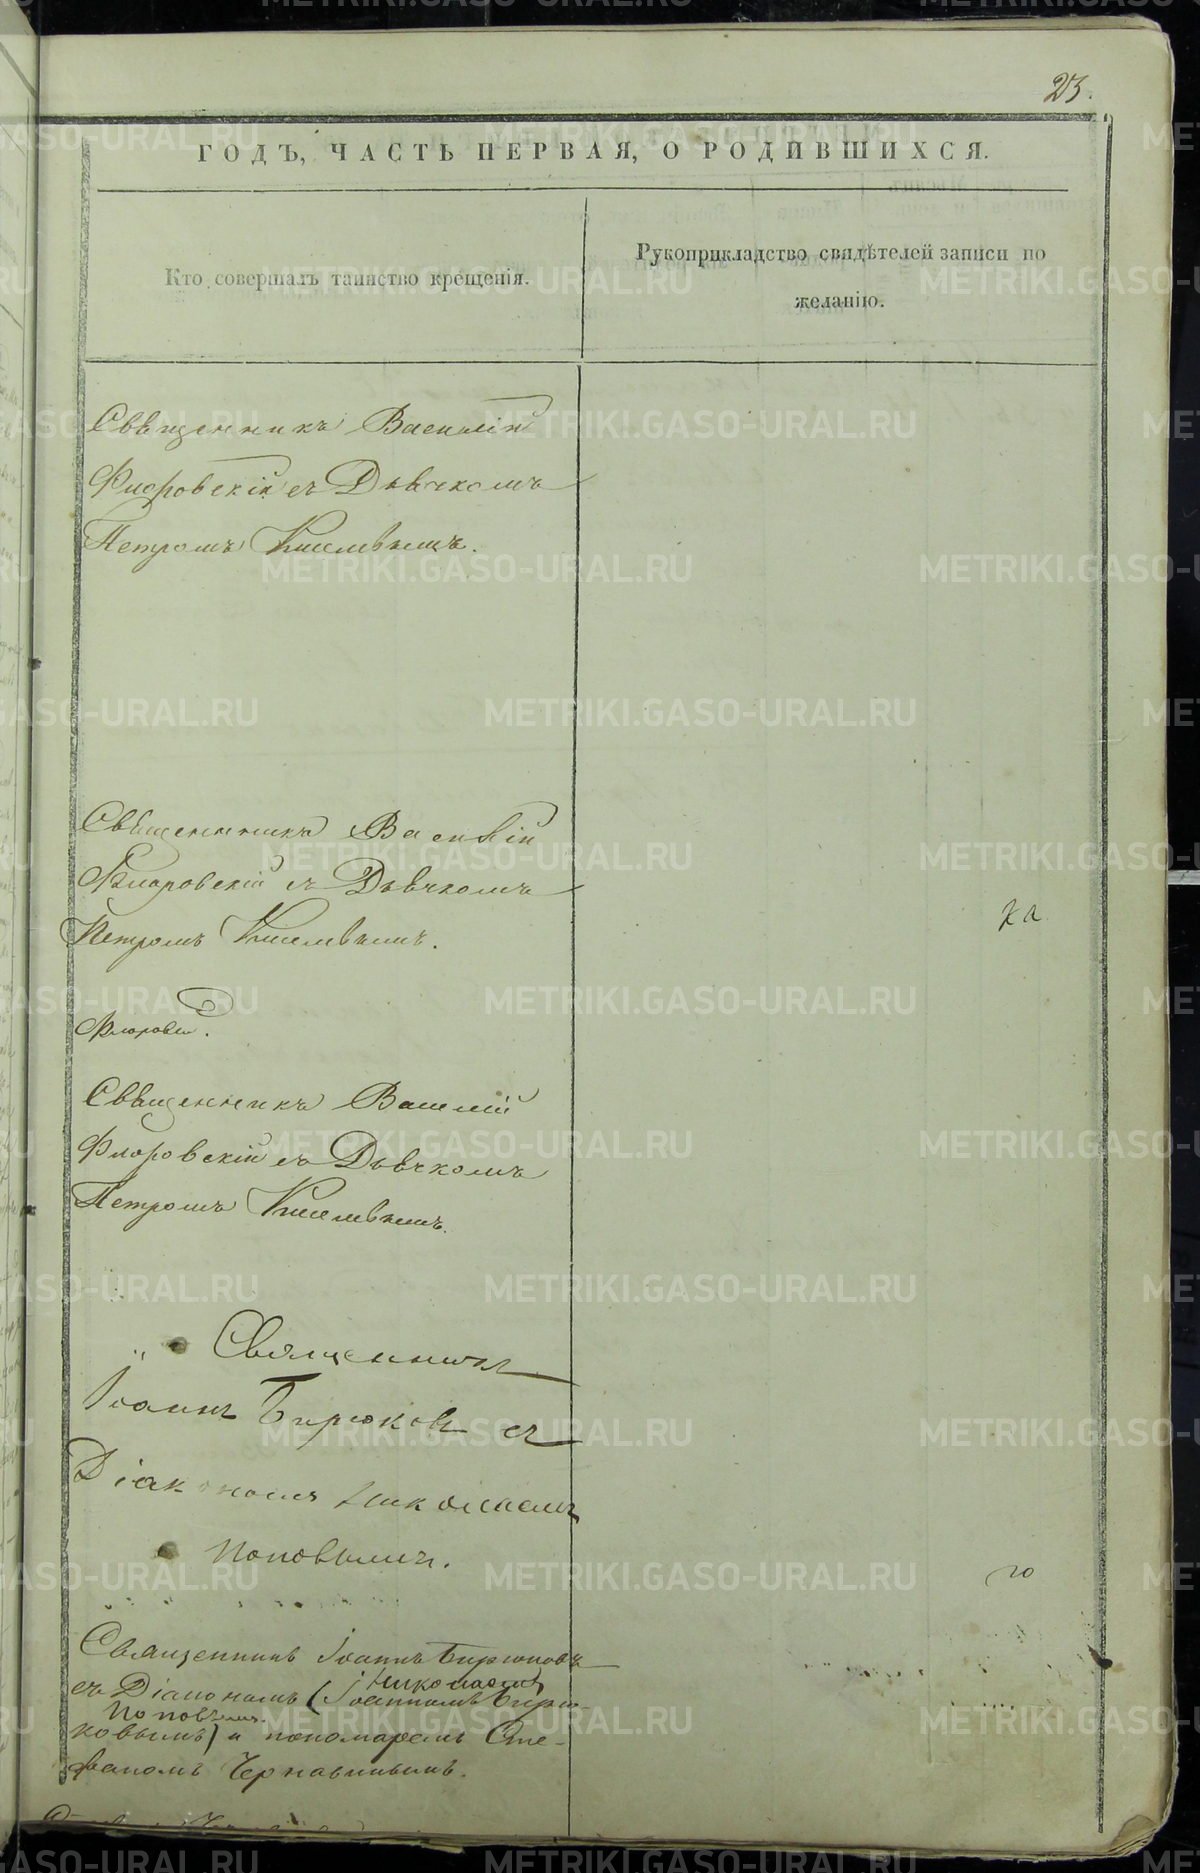 23.
ГОДЪ, ЧАСТЬ ПЕРВАЯ, О РОДИВШИХСЯ.
Кто совершалъ таинство крещенія.
Рукоприкладство свидѣтелей записи по
желанію.
Священникъ Василій
Флоровскій съ Дьячкомъ
Петромъ Киселевымъ.
Священникъ Василій
Флоровскій съ Дьячкомъ
Петромъ Киселевымъ.
Священникъ Василій
Флоровскій съ Дьячкомъ
Петромъ Киселевымъ.
Священникъ
Іоаннъ Бирюковъ съ
Діакономъ Николаемъ
Поповымъ.
Священникъ Іоаннъ Бирюковъ
Николаемъ
съ Діакономъ (Іоанномъ Бирю-
Поповымъ.
ковымъ) и пономаремъ Сте-
фаномъ Чернавинымъ.
METRIKI.GASO-URAL.RU